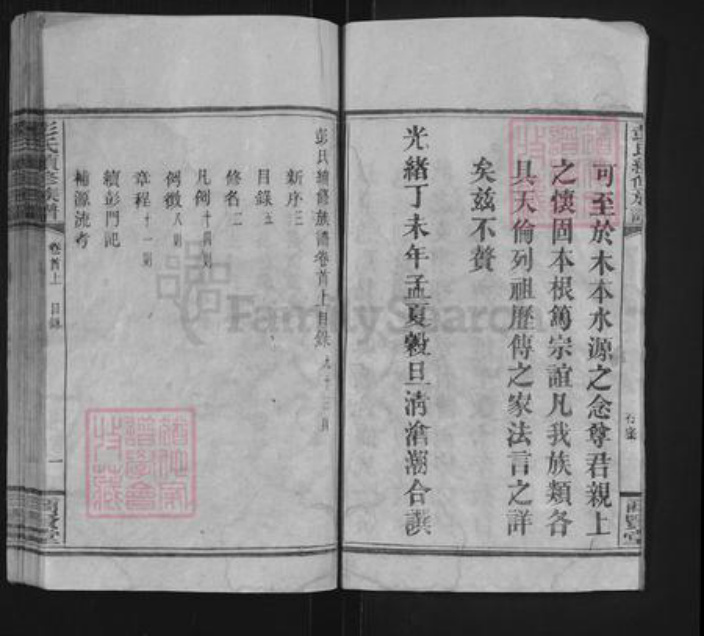 可至於木本水源之念尊君親上
之懷固本根篤宗誼凡我族類各
具天倫列祖歷傳之家法言之詳
矣茲不贅
光緒丁未年孟夏穀旦清滄潮合譔
彭氏續修族譜卷首上目錄
新序三
目錄五
修名二
凡例十四則
例徵八則
章程十一則
續彭門記
補源流考
彭氏續修族譜
卷首上 目錄
一
FamilySearch